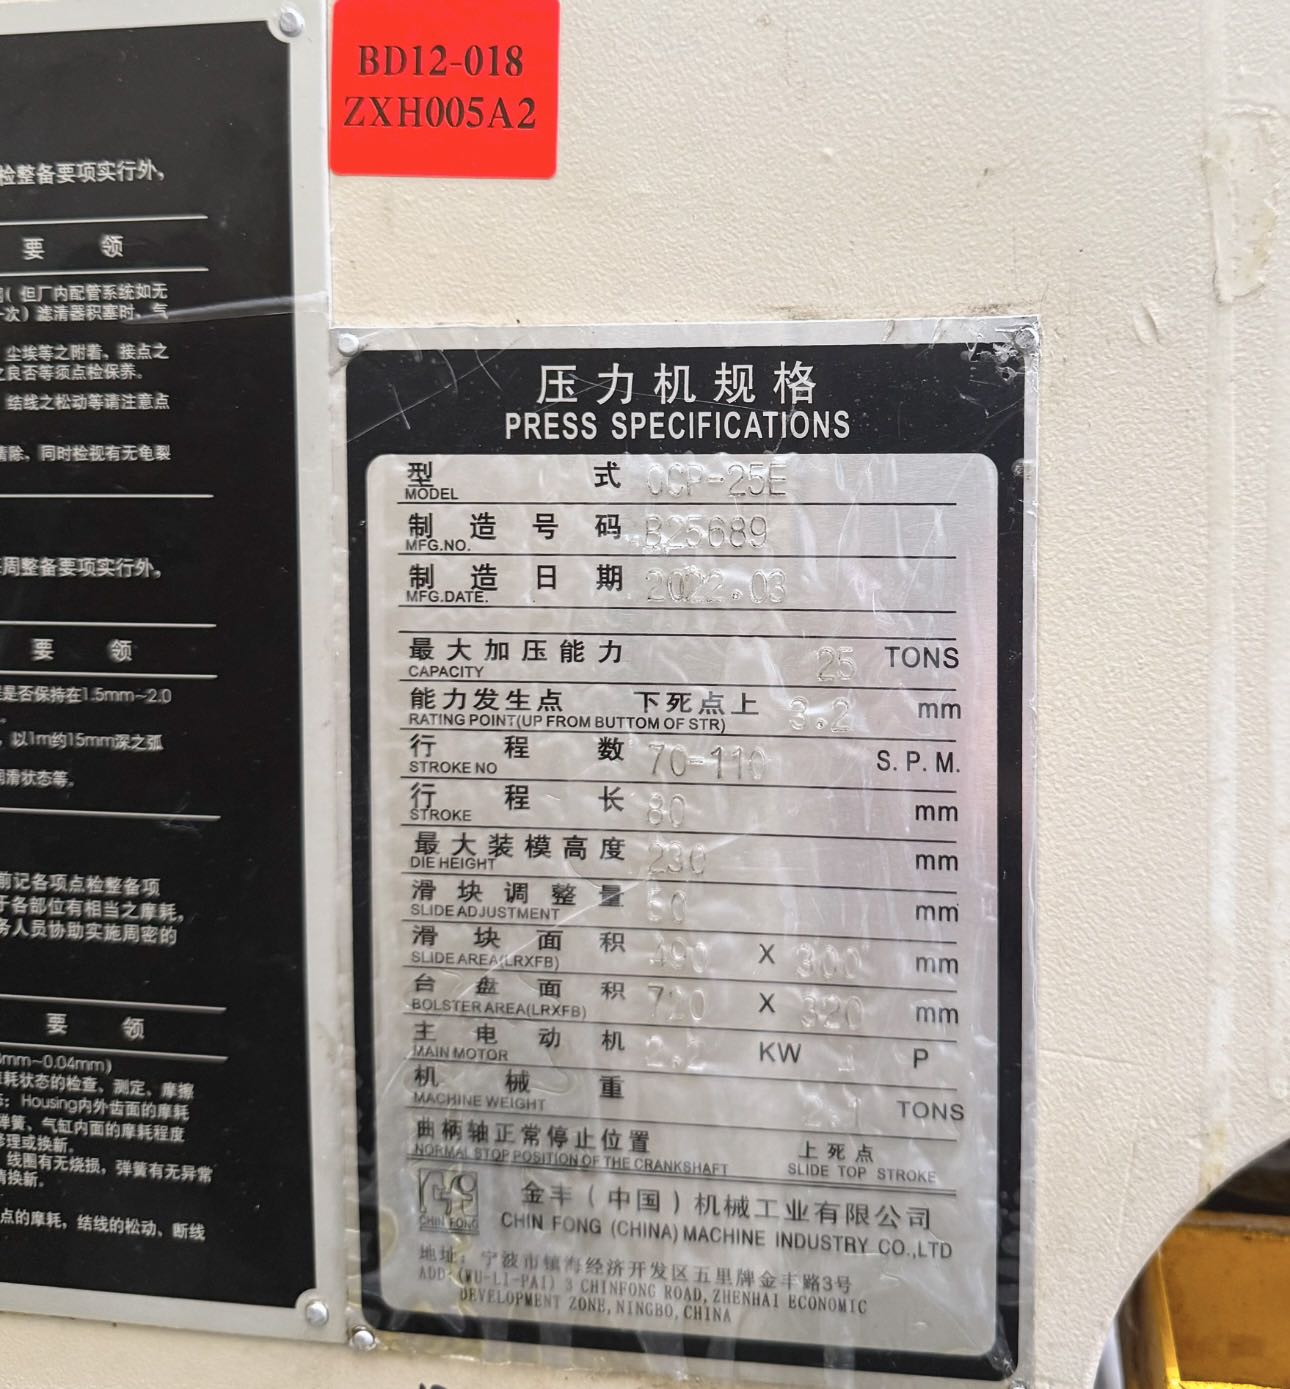 BD12-018
ZXH005A2
检整备要项实行外,
要 领
(但厂内配管系统如无
一次)滤清器积塞时、气
尘埃等之附着、接点之
之良否等须点检保养。
结线之松动等请注意点
清除, 同时检视有无龟裂
周整备要项实行外,
要 领
是否保持在1.5mm~2.0
, 以1m约15mm深之弧
滑状态等。
前记各项点检整备项
于各部位有相当之摩耗,
务人员协助实施周密的
要 领
mm~0.04mm)
耗状态的检查、测定、摩擦
Housing内外齿面的摩耗
弹簧、气缸内面的摩耗程度
修理或换新。
线圈有无烧损, 弹簧有无异常
换新。
点的摩耗, 结线的松动、断线
压力机规格
PRESS SPECIFICATIONS
型 式 OCP-25E
MODEL
制造号码 B25689
MFG.NO.
制造日期 2022.03
MFG.DATE.
最大加压能力 25 TONS
CAPACITY
能力发生点 下死点上 3.2 mm
RATING POINT(UP FROM BUTTOM OF STR)
行程数 70-110 S.P.M.
STROKE NO
行程长 80 mm
STROKE
最大装模高度 230 mm
DIE HEIGHT
滑块调整量 50 mm
SLIDE ADJUSTMENT
滑块面积 X 300 mm
SLIDE AREA(LRXFB)
台盘面积 720 X 320 mm
BOLSTER AREA(LRXFB)
主电动机 2.2 KW P
MAIN MOTOR
机械重 TONS
MACHINE WEIGHT
曲柄轴正常停止位置 上死点
NORMAL STOP POSITION OF THE CRANKSHAFT SLIDE TOP STROKE
CHIN FONG
金丰(中国)机械工业有限公司
CHIN FONG (CHINA) MACHINE INDUSTRY CO.,LTD
地址: 宁波市镇海经济开发区五里牌金丰路3号
ADD: (WU-LI-PAI) 3 CHINFONG ROAD, ZHENHAI ECONOMIC
DEVELOPMENT ZONE, NINGBO, CHINA